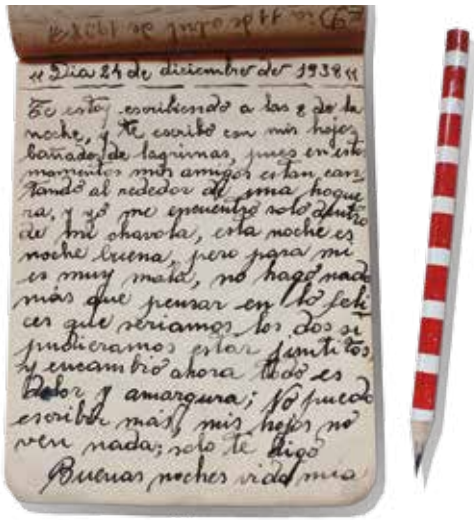 "Dia 24 de diciembre de 1938"
Te estoy escribiendo a las 8 de la
noche, y te escribo con mis hojos
bañados de lagrimas, pues en estos
momentos mis amigos estan can
tando al rededor de una hogue
ra, y yo me encuentro solo dentro
de mi chavola, esta noche es
noche buena, pero para mi
es muy mala, no hago nada
más que pensar en lo feli
ces que seriamos los dos si
pudieramos estar juntitos
y encambio ahora todo es
dolor y amargura; No puedo
escribir más, mis hojos no
ven nada; solo te digo
Buenas noches vida mia